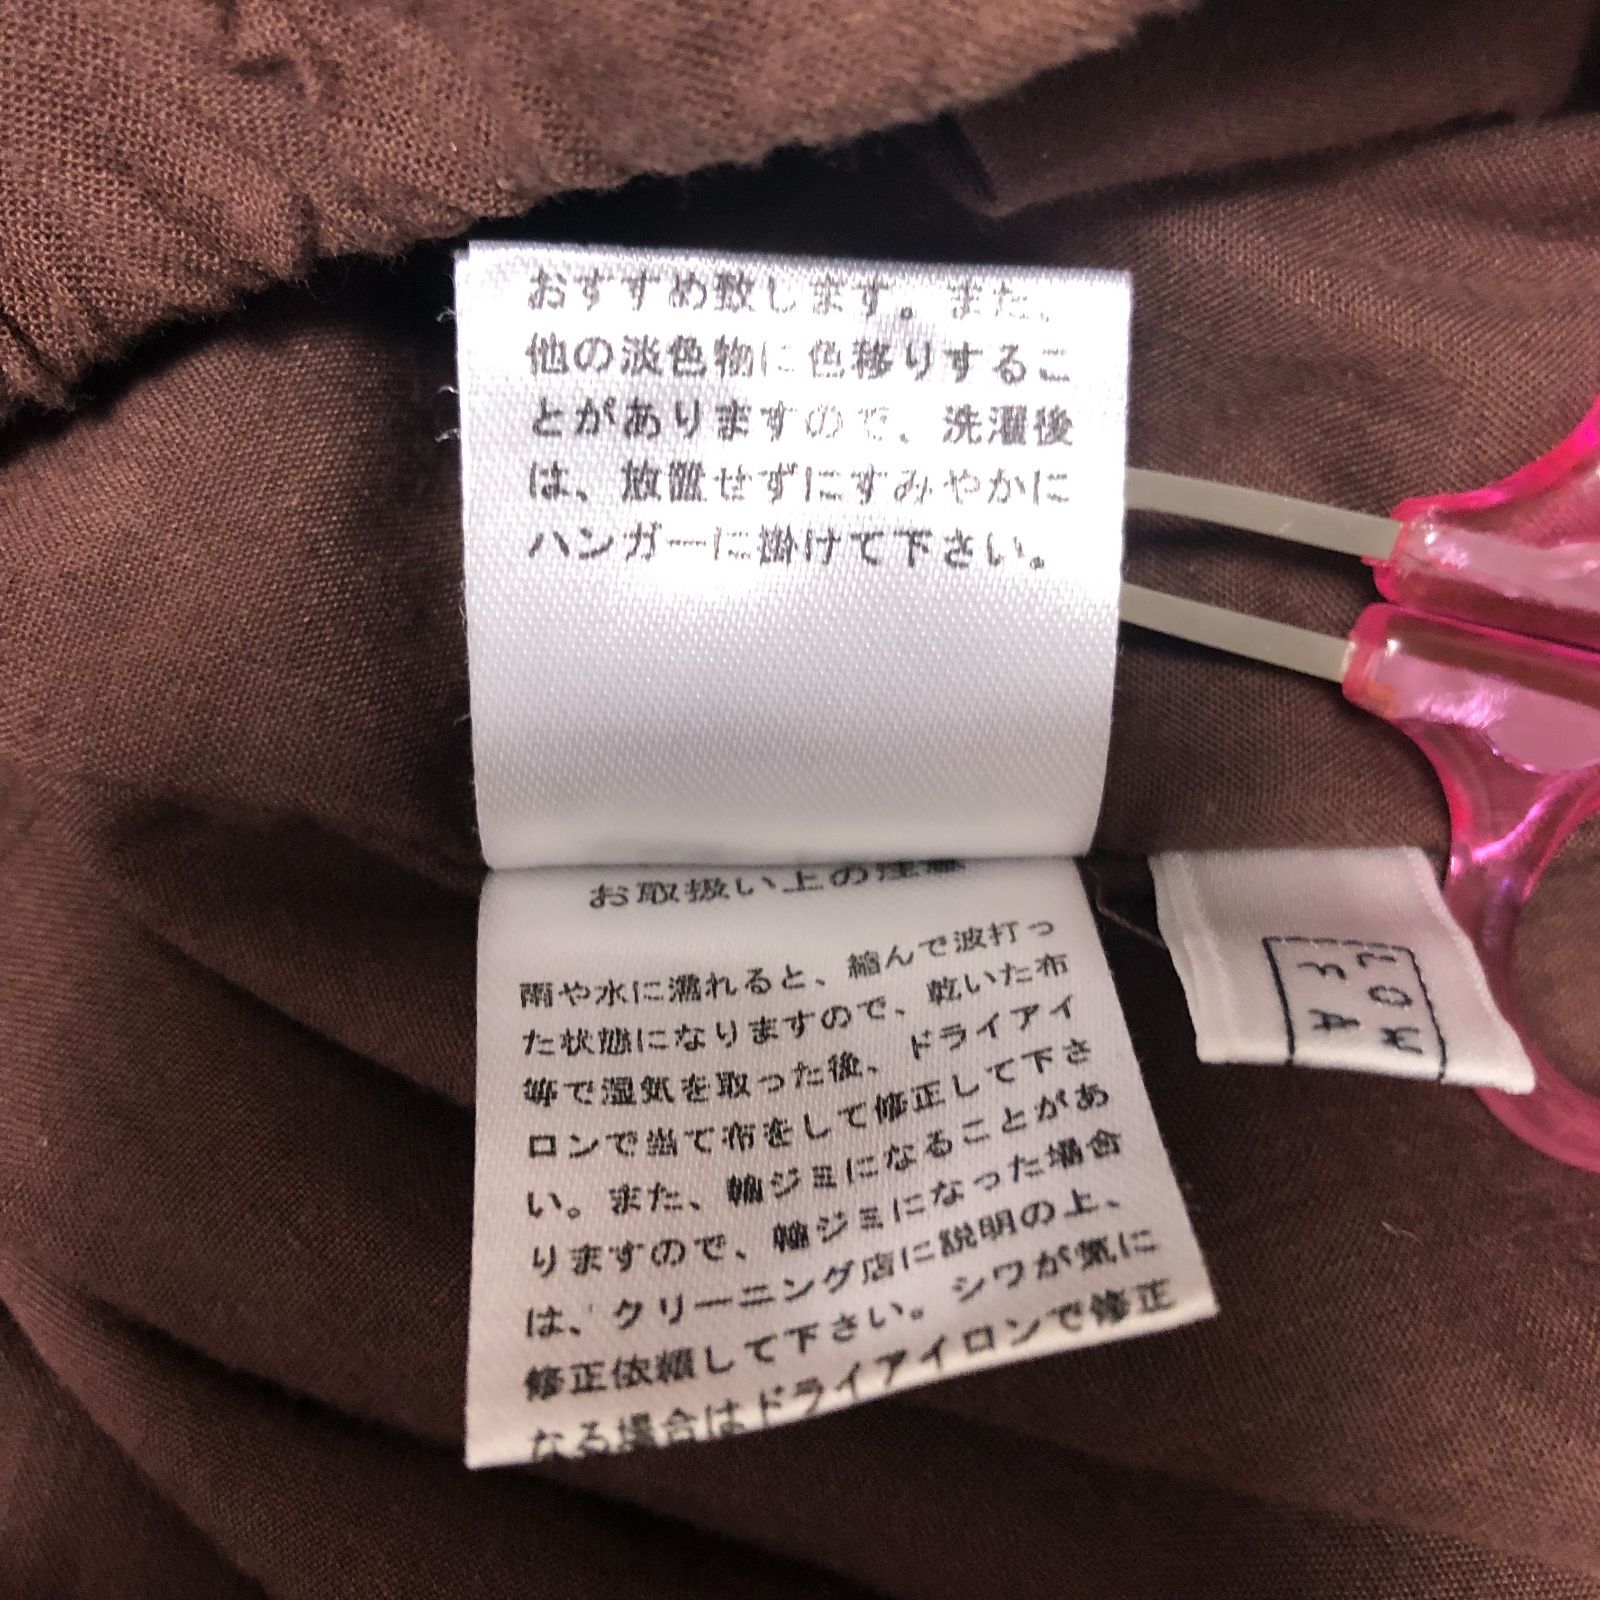 おすすめ致します。また、
他の淡色物に色移りするこ
とがありますので、洗濯後
は、放置せずにすみやかに
ハンガーに掛けて下さい。
お取扱い上の注意
雨や水に濡れると、縮んで波打っ
た状態になりますので、乾いた布
等で湿気を取った後、ドライアイ
ロンで当て布をして修正して下さ
い。また、輪ジミになることがあ
りますので、輪ジミになった場合
は、クリーニング店に説明の上、
修正依頼して下さい。シワが気に
なる場合はドライアイロンで修正